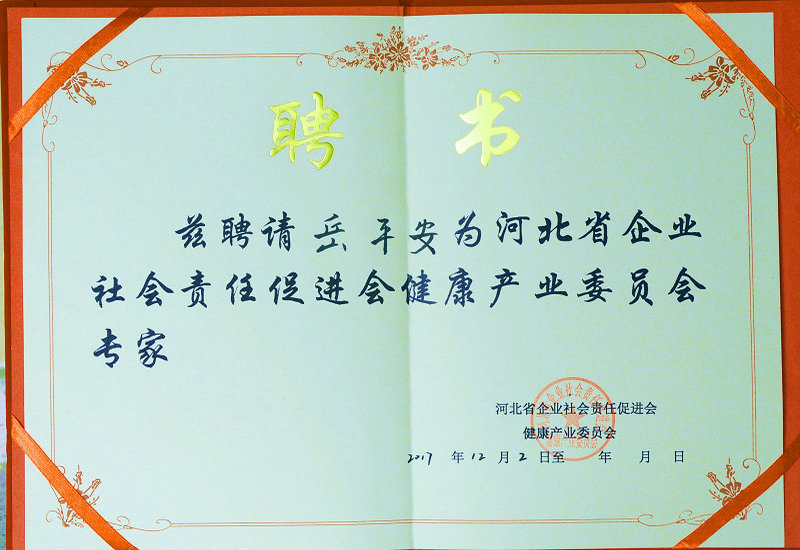 聘书
兹聘请岳平安为河北省企业
社会责任促进会健康产业委员会
专家
河北省企业社会责任促进会
健康产业委员会
2017年12月2日至 年 月 日